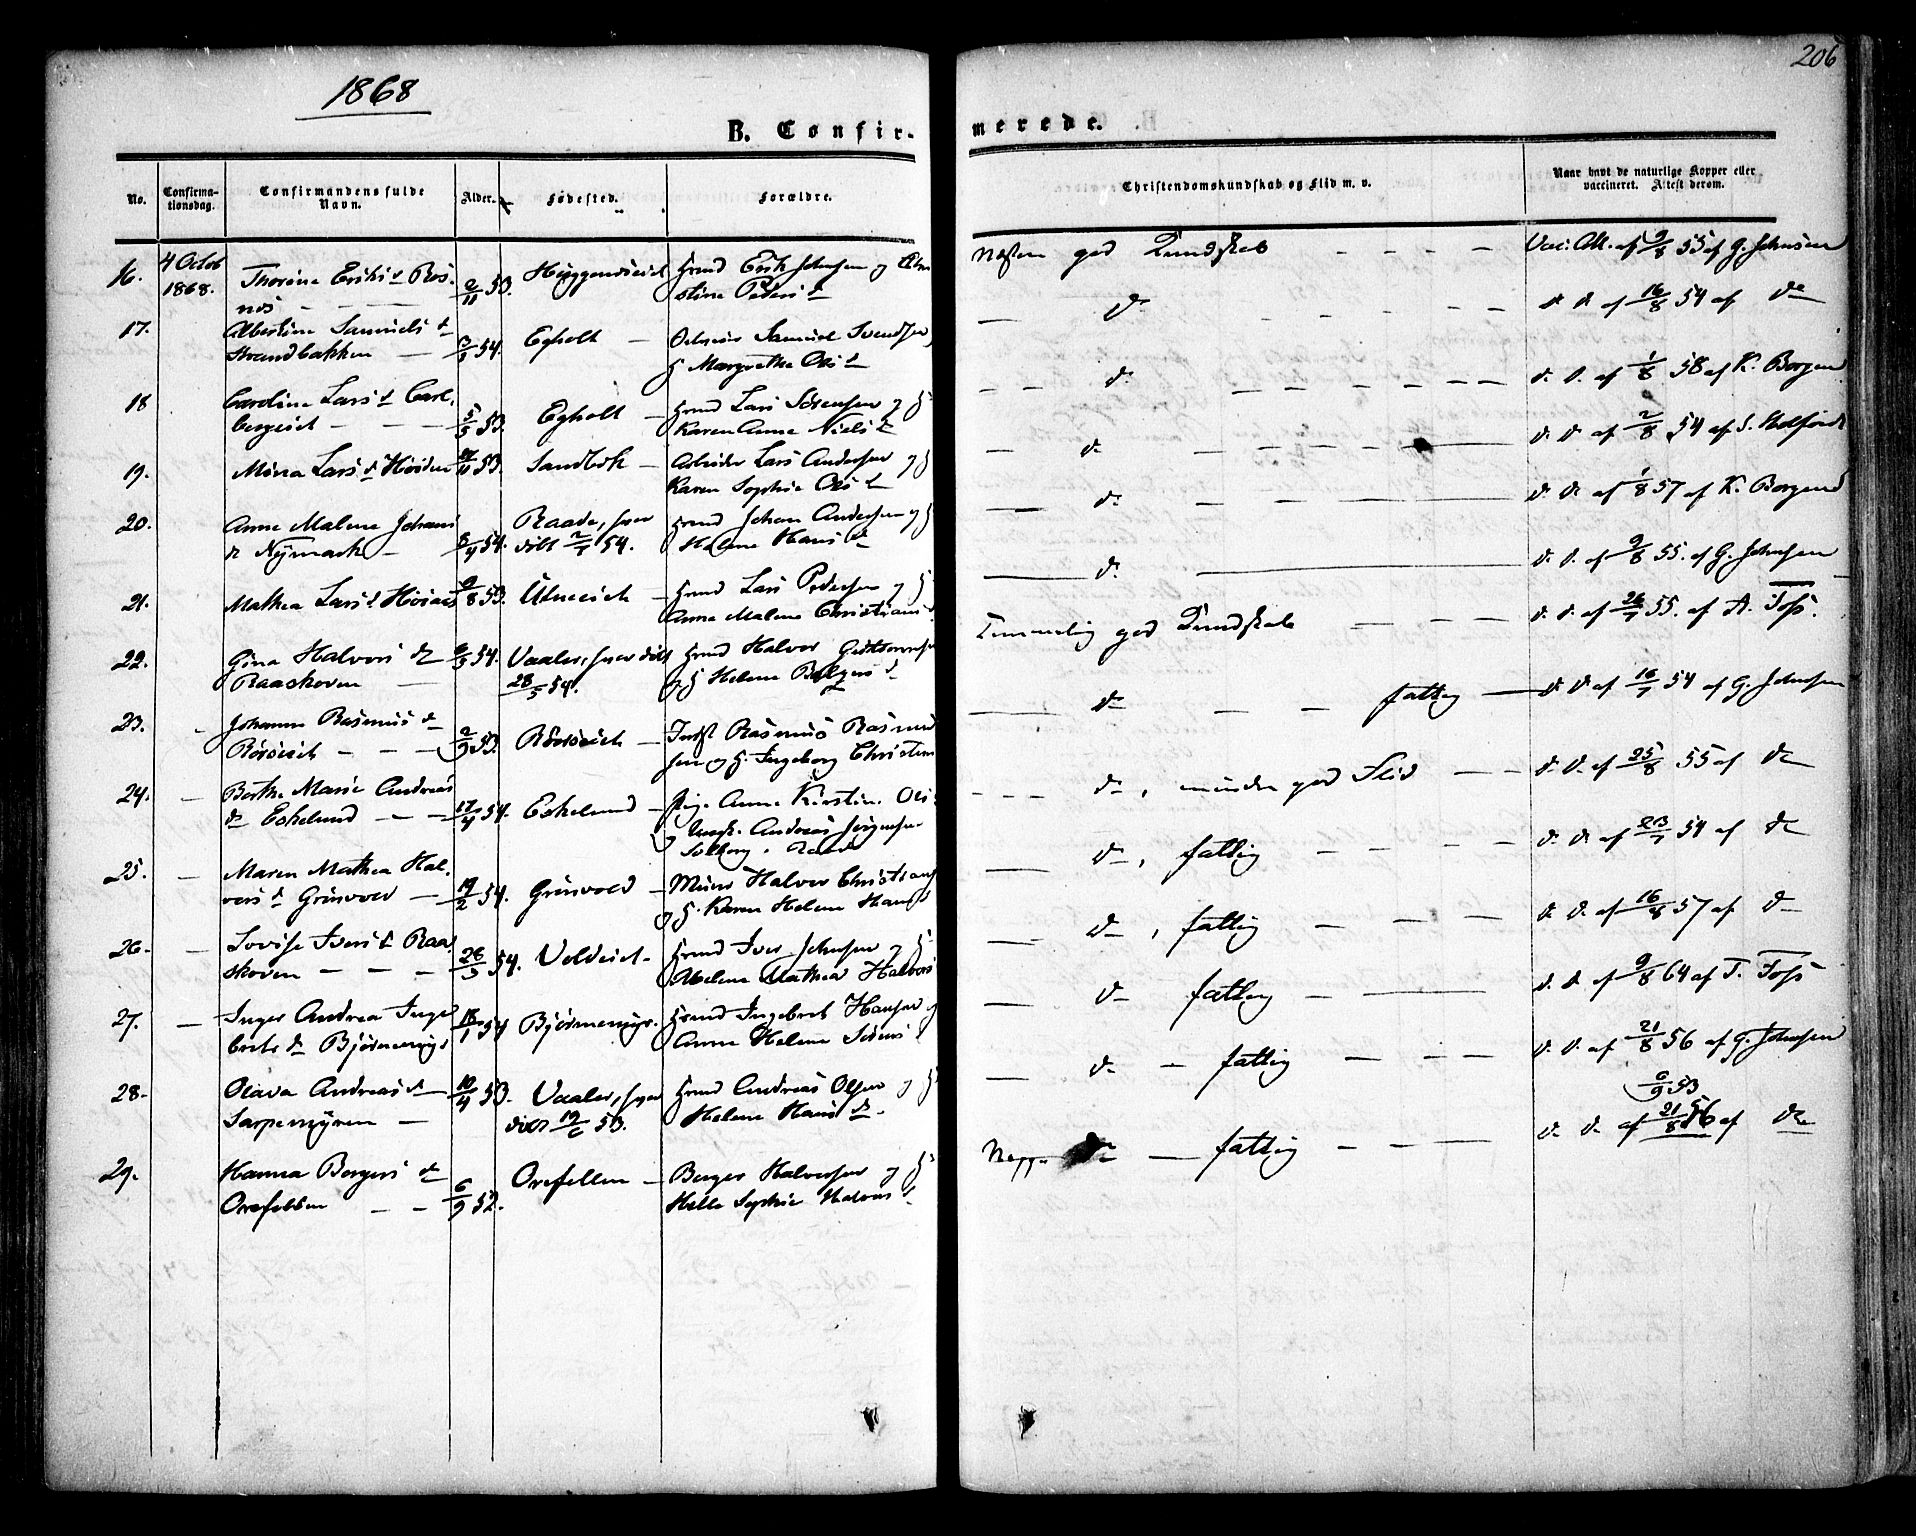 206
1868
B. Confirmerede.
No. Confirmationsdag. Confirmandens fulde Navn. Alder. Fødested. Forældre. Christendomskundskab og Flid m. v. Naar havt de naturlige Kopper eller vaccineret. Attest derom.
16. 4 Octob 1868. Thorine Eriks d Ros
2/11 53. Hmd Erik Johnsen og
stine Peders d
Næsten god Kundskab - - - Vac: Att. af 9/8 55 af G. Johnsen
17. Albertine Samuels d
Strandbakken - 3/1 54. Egholt - Samuel Svendsen
H Margrethe Ols d
— d - - - d. d. af 16/8 54 af do
18 Caroline Lars d Carl
bergeiet - - 5/5 53. Egholt - Hmd Lars Sørensen og H
Karen Anne Niels d
- - d. - - - d. d. af 1/8 58 af K. Borgen
19. Mina Lars d 53. Sandbek - Lars Andersen og H
Karen Sophie Ols d
— d. - - - d. d. af 2/8 54 af S.
20. Anne Malene Johans
d Nymark - 3/4 54. Raade, hvor
døbt 2/7 54. Hmd Johan Andersen og H
Helene Hans d
— d. — d. d. af 1/8 57 af K. Borgen
21. Mathea Lars d 9/8 53. - Hmd Lars Pedersen og H
Anne Malene Christians d
— d. — d. d. af 9/8 55. af G. Johnsen
22. Gina Halvors d
Raaskoven - 54. Vaaler, hvor døbt
28/5 54. Hmd Halvor
og H Helene
Temmelig god Kundskab - - - d. d. af 26/7 55. af A. Foss.
23. Johanne Rasmus d
- - - 2/9 53. - Rasmus Rasmus
sen og H. Ingeborg Christens
— d - - fattig — d. d. af 16/7 54 af G. Johnsen
24. - Berthe Marie Andreas
d Eskelund - - 17/4 54. Eskelund - Pige Anne Kirstine Ols
Ungk. Andreas Jørgensen
Solberg, Raade
- - - d, mindre god Flid - - d. d. af 25/8 55 af do
25. - Maren Mathea Hal
vors d Grønvold - 19/2 54. Grønvold - Halvor Christians
og H. Karen Helene Hans d
— d, fattig - - - d. d. af 23/7 54 af do
26. - Lovise Ivers d Raa
skoven - - - 26/3 54. - Hmd Iver Johnsen og H
Mathea Halvors
— d, fattig - - - d. d. af 16/8 57 af do
27. - Inger Andrea Inge
brets d Bjørnemyr 18/1 54 Bjørnemyr. Hmd Ingebret Hansen og
Anne Helene Sørens d
— d fattig - — d. d. af 9/8 64 af T. Foss
28. Olava Andreas d -
Sarpemyren - 10/4 53. Vaaler, hvor
døbt 19/6 53. Hmd Andreas Olsen og H
Helene Hans d.
— d - fattig - - - d. d. af 21/8 56 af G. Johnsen
6/9 53
29. Hanna Borgers d
Orefellen - - 6/9 52. Orefellen - Borger Halvorsen og H
Helle Sophie Halvors d
d — fattig - - - d. d. af 21/8 56 af do